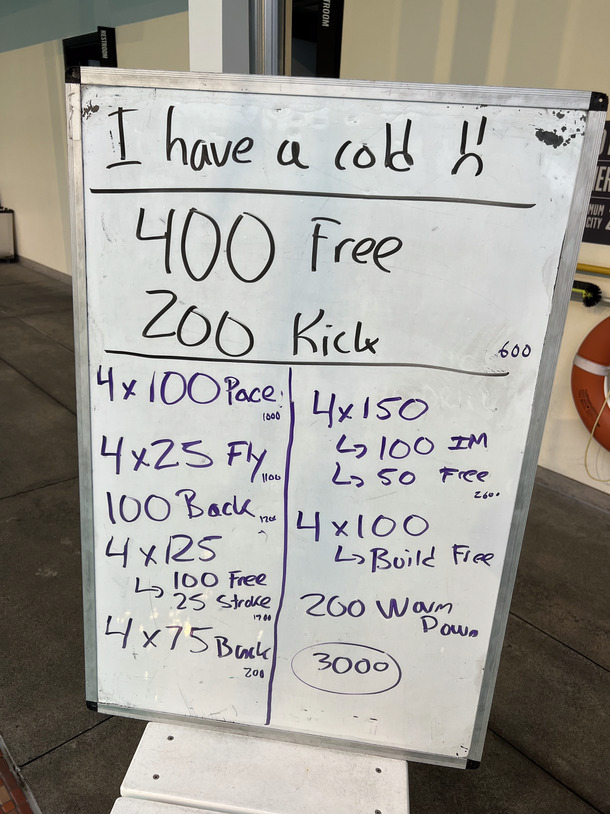 RESTROOM
RESTROOM
I have a cold
400 Free
200 Kick
600
4x100 Pace
1000
4x25 Fly
1100
100 Back
4x125
↳ 100 Free
25 Stroke
1700
4x75 Back
200
4x150
↳ 100 IM
↳ 50 Free
2600
4x100
↳ Build Free
200 Warm
Down
3000